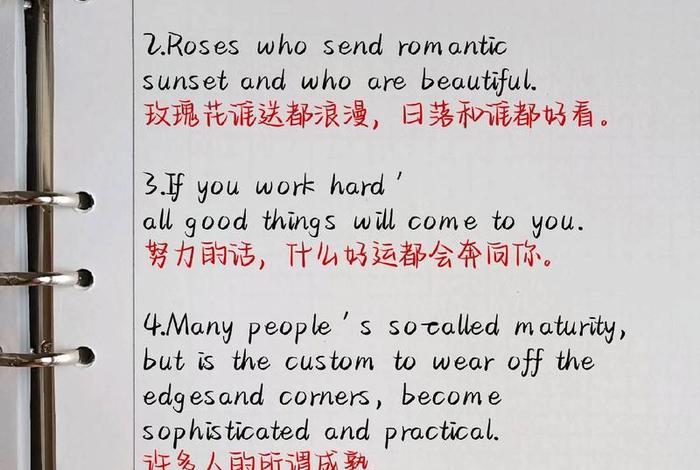 2.Roses who send romantic
sunset and who are beautiful.
玫瑰花谁送都浪漫，日落和谁都好看。
3.If you work hard'
all good things will come to you.
努力的话，什么好运都会奔向你。
4.Many people's so-called maturity,
but is the custom to wear off the
edgesand corners, become
sophisticated and practical.
许多人的所谓成熟